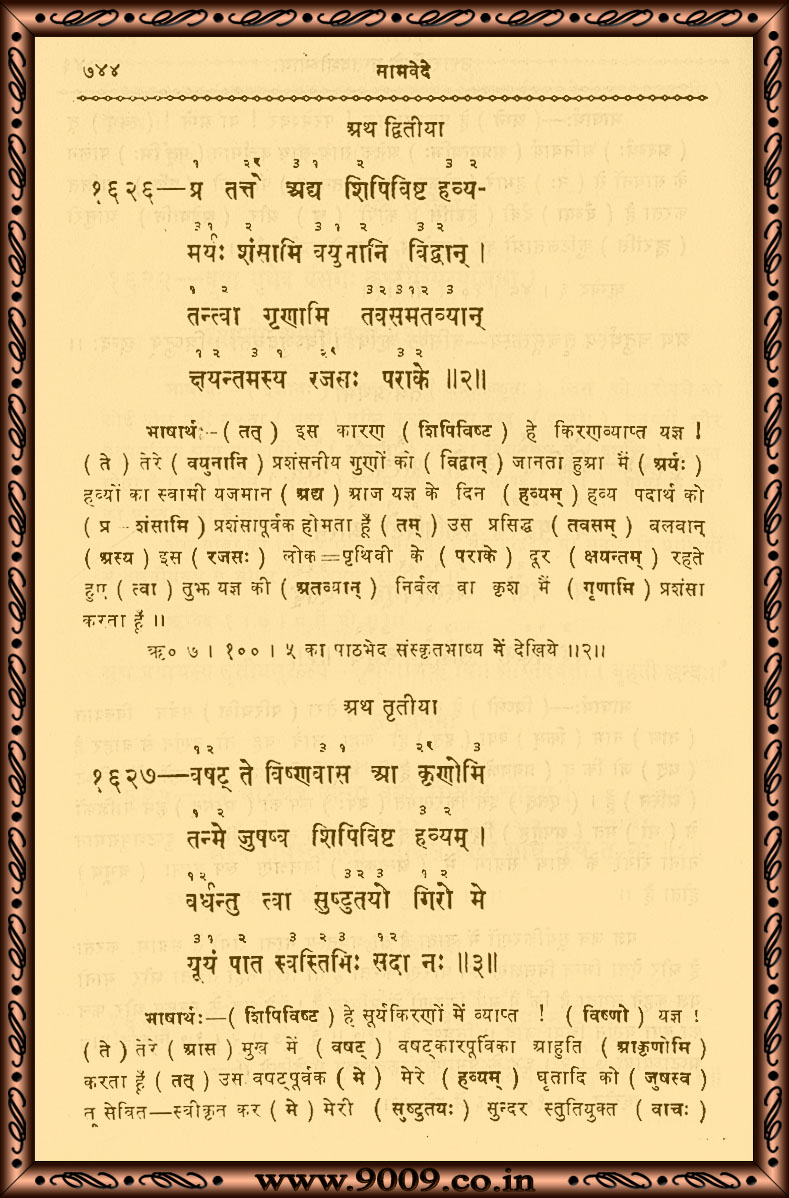 ७४४ सामवेदे
अथ द्वितीया
१ २र ३ १ २ ३ २
१६२६—प्र तत्ते अद्य शिपिविष्ट हव्य-
३ १ २ ३ १ २ ३ २
मर्यः शंसामि वयुनानि विद्वान् ।
१ २ ३ २ ३ १ २ ३
तन्त्वा गृणामि तवसमतव्यान्
१ २ ३ १ २र ३ २
क्षयन्तमस्य रजसः पराके ॥२॥
भाषार्थः—( तत् ) इस कारण ( शिपिविष्ट ) हे किरणव्याप्त यज्ञ !
( ते ) तेरे ( वयुनानि ) प्रशंसनीय गुणों को ( विद्वान् ) जानता हुआ मैं ( अर्यः )
हव्यों का स्वामी यजमान ( अद्य ) आज यज्ञ के दिन ( हव्यम् ) हव्य पदार्थ को
( प्र—शंसामि ) प्रशंसापूर्वक होमता हूँ ( तम् ) उस प्रसिद्ध ( तवसम् ) बलवान्
( अस्य ) इस ( रजसः ) लोक=पृथिवी के ( पराके ) दूर ( क्षयन्तम् ) रहते
हुए ( त्वा ) तुझ यज्ञ की ( अतव्यान् ) निर्बल वा कृश मैं ( गृणामि ) प्रशंसा
करता हूँ ॥
ऋ० ७ । १०० । ५ का पाठभेद संस्कृतभाष्य में देखिये ॥२॥
अथ तृतीया
१ २ ३ १ २र ३
१६२७—वषट् ते विष्णवास आ कृणोमि
१ २ ३ २
तन्मे जुषष्व शिपिविष्ट हव्यम् ।
१ २ ३ २ ३ १ २
वर्धन्तु त्वा सुष्टुतयो गिरो मे
३ १ २ ३ २ ३ १ २
यूयं पात स्वस्तिभिः सदा नः ॥३॥
भाषार्थः—( शिपिविष्ट ) हे सूर्यकिरणों में व्याप्त ! ( विष्णो ) यज्ञ !
( ते ) तेरे ( आस ) मुख में ( वषट् ) वषट्कारपूर्विका आहुति ( आकृणोमि )
करता हूँ ( तत् ) उस वषट्पूर्वक ( मे ) मेरे ( हव्यम् ) घृतादि को ( जुषस्व )
तू सेवित—स्वीकृत कर ( मे ) मेरी ( सुष्टुतयः ) सुन्दर स्तुतियुक्त ( वाचः )
www.9009.co.in